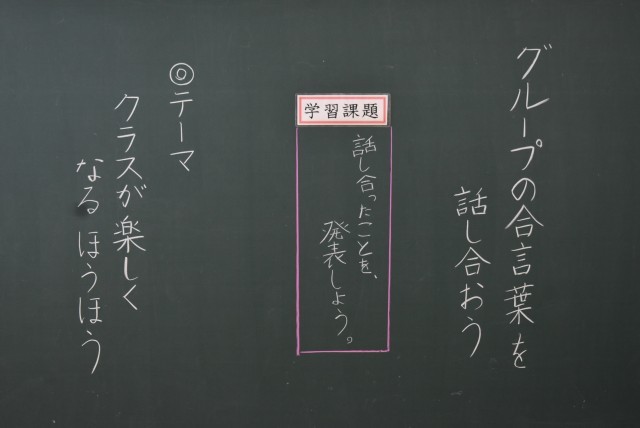 グループの合言葉を
話し合おう
学習課題
話し合ったことを、
発表しよう。
◎テーマ
クラスが楽しく
なるほうほう